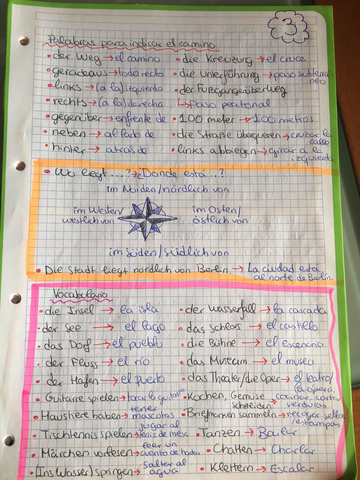 3
Palabras para indicar el camino
• der Weg → el camino • die Kreuzung → el cruce
• geradeaus → todo recto • die Unterführung → paso subterraneo
• links → (a la) izquierda • der Fußgangerüberweg
• rechts → (a la) derecha → paso peatonal
• gegenüber → enfrente de • 100 meter → 100 metros
• neben → al lado de • die Straße überqueren → cruzar la calle
• hinter → atrás de • links abbiegen → girar a la izquierda
• Wo liegt...? → Dónde está...?
im Norden/nördlich von
im Westen/ im Osten/
westlich von östlich von
im Süden/südlich von
• Die Stadt liegt nördlich von Berlin → La ciudad está
al norte de Berlín.
Vocabulario
• die Insel → la isla • der Wasserfall → la cascada
• der See → el lago • das Schloss → el castillo
• das Dorf → el pueblo • die Bühne → el escenario
• der Fluss → el río • das Museum → el museo
• der Hafen → el puerto • das Theater/die Oper → el teatro/
• Guitarre spielen → tocar la guitarra • Kochen, Gemüse schneiden → cocinar, cortar verduras
• Haustiere haben → tener mascotas • Briefmarken sammeln → recoger sellos
• Tischtennis spielen → jugar al tenis de mesa • Tanzen → Bailar
• Märchen vorlesen → leer un cuento de hadas • Chatten → Charlar
• Ins Wasser springen → saltar al agua • Klettern → Escalar